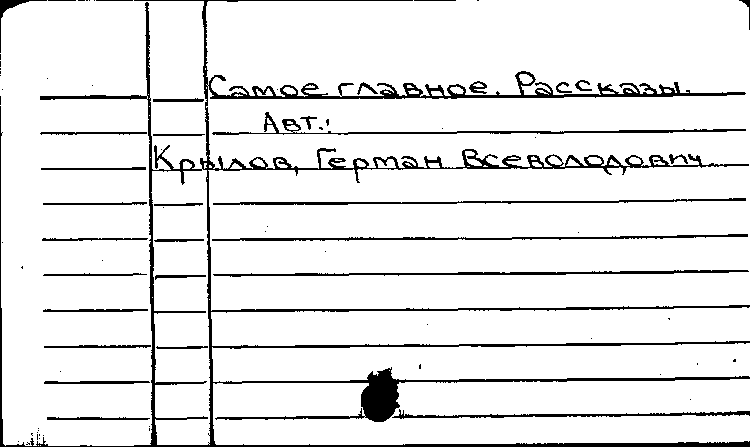 Самое главное. Рассказы.
Авт.:
Крылов, Герман Всеволодович